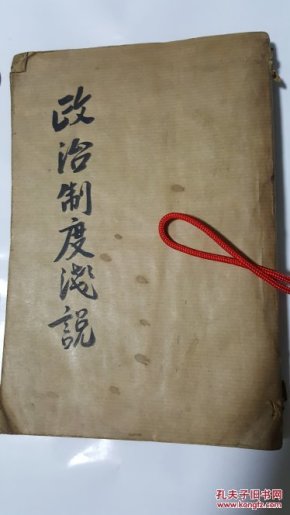 政治制度浅說
孔夫子旧书网
www.kongfz.com